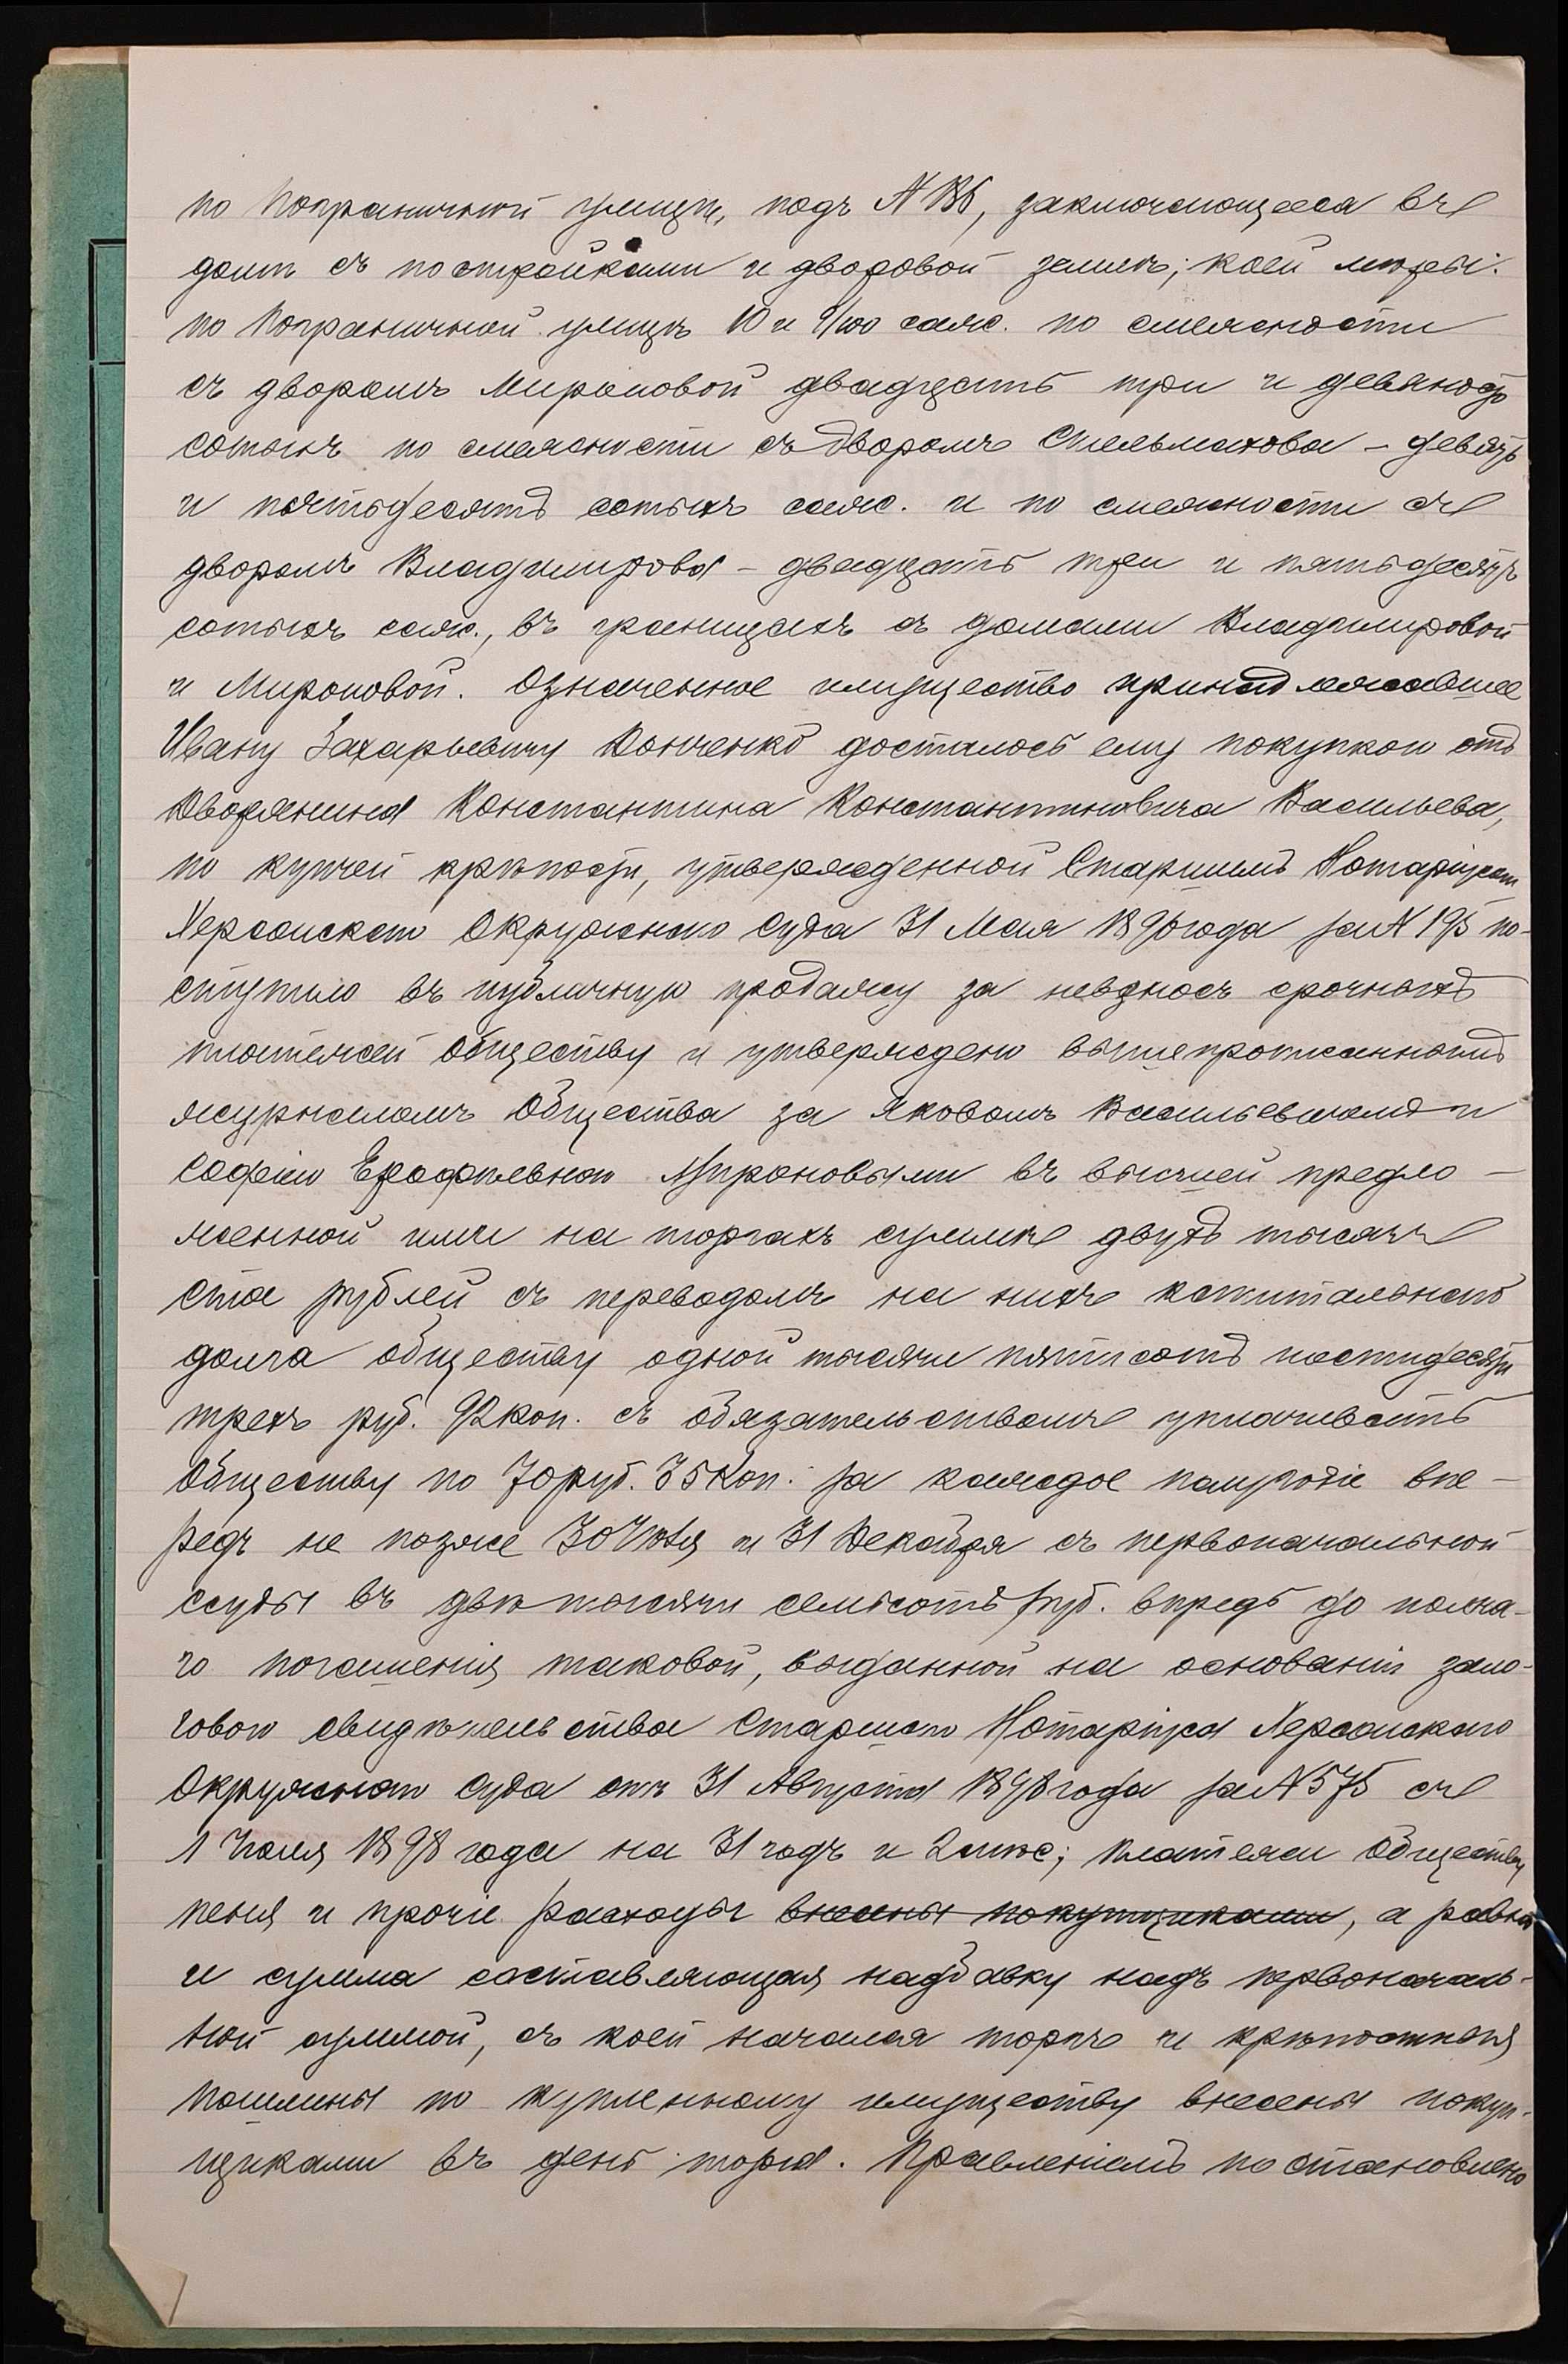 по Пограничной улицѣ, подъ № 136, заключающееся въ
домѣ съ постройками и дворовой землѣ; коей мѣры:
по Пограничной улицѣ 10 и 9/100 саж. по смежности
съ дворомъ Мироновой двадцать три и девяносто
сотыхъ по смежности съ дворомъ Стельмахова – девять
и пятьдесятъ сотыхъ саж. и по смежности съ
дворомъ Владимирова – двадцать три и пятьдесятъ
сотыхъ саж., въ границахъ съ домами Владимировой
и Мироновой. Означенное имущество принадлежавшее
Ивану Захарьевичу Донченко досталось ему покупкою отъ
Дворянина Константина Константиновича Васильева,
по купчей крѣпости, утвержденной Старшимъ Нотаріусомъ
Херсонскаго Окружнаго Суда 31 Мая года за № 195 по-
ступило въ публичную продажу за невзносъ срочныхъ
платежей Обществу и утверждено вышепрописаннымъ
журналомъ Общества за Яковомъ Васильевичемъ и
Софіею Ерофѣевною Мироновыми въ высшей предло-
женной ими на торгахъ суммѣ двухъ тысячъ
ста рублей съ переводомъ на нихъ капитальнаго
долга обществу одной тысячи пятисотъ шестидесяти
трехъ руб. 92 коп. съ обязательствомъ уплачивать
Обществу по 70 руб. 35 коп. за каждое полугодіе впе-
редъ не позже 30 Іюня и 31 Декабря съ первоначальной
ссуды въ двѣ тысячи семьсотъ руб. впредь до полна-
го погашенія таковой, выданной на основаніи зало-
говаго свидѣтельства Старшаго Нотаріуса Херсонскаго
Окружнаго Суда отъ 31 Августа 1898 года за № 575 съ
1 Іюля 1898 года на 31 годъ и 2 мѣс; платежи Обществу
пеня и прочіе расходы внесены покупщиками, а равно
и сумма составляющая надбавку надъ первоначаль-
ной суммой, съ коей начался торгъ и крѣпостныя
пошлины по купленному имуществу внесены покуп-
щиками въ день торга. Правленіемъ постановлено